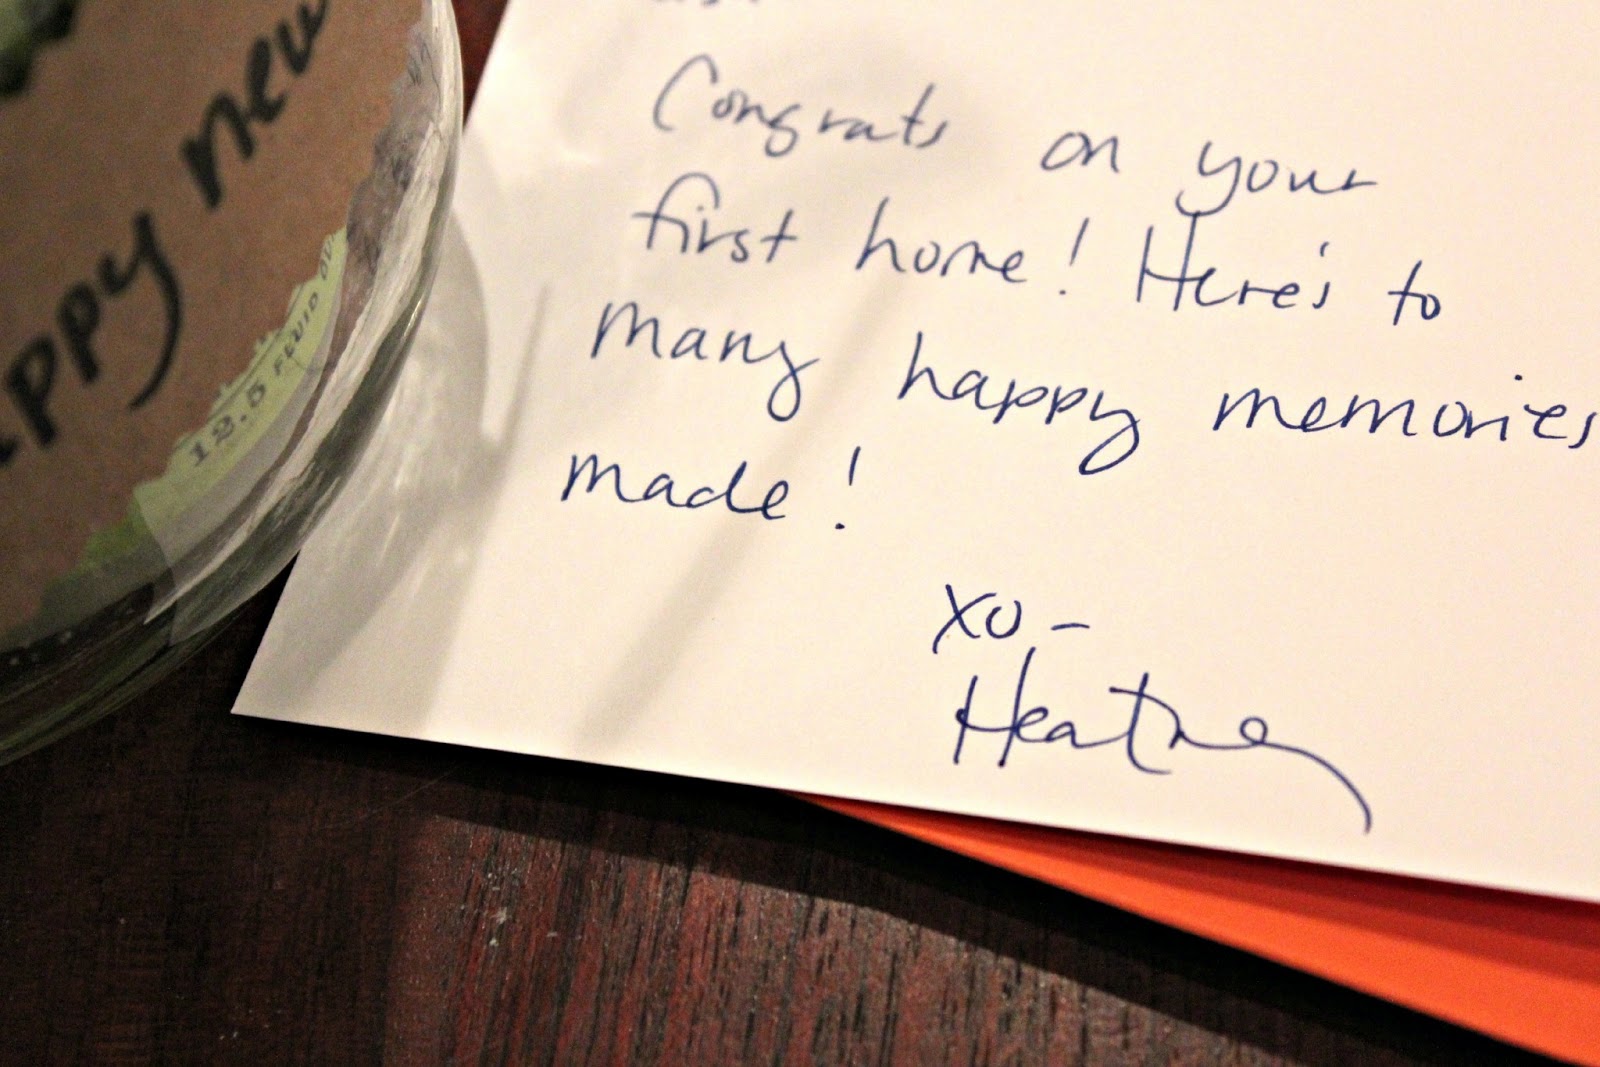 Congrats on your
first home! Here's to
many happy memories
made!
xo -
Heather
appy new
12.5 FLUID